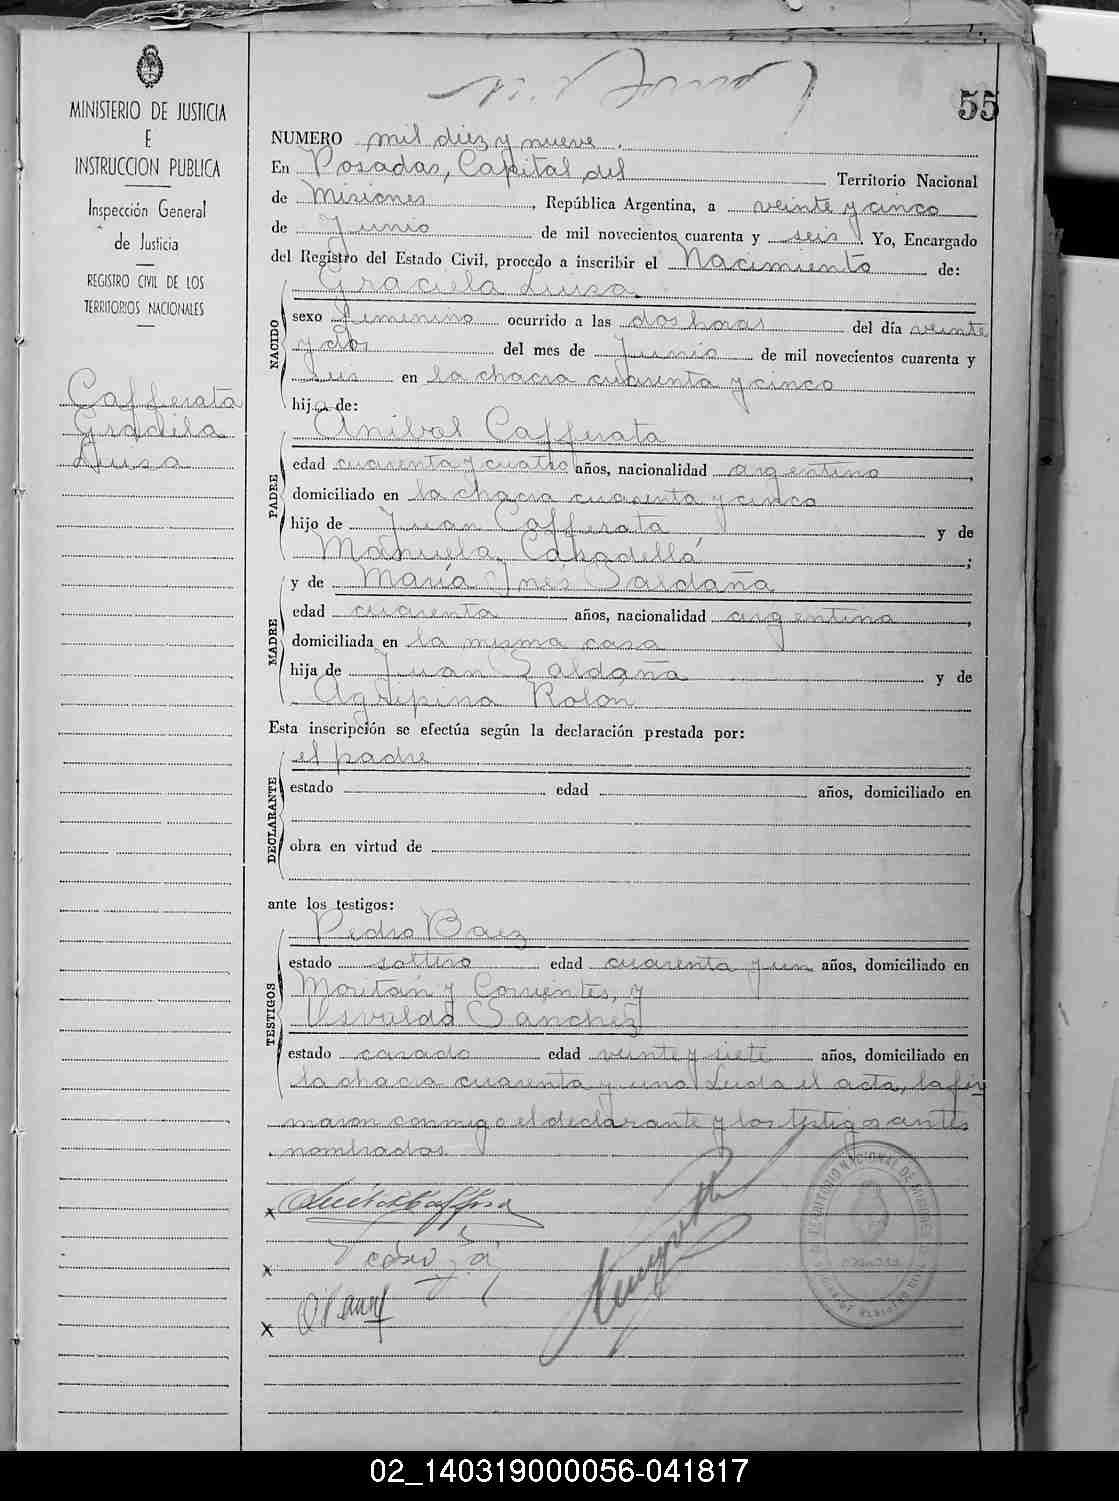 55
MINISTERIO DE JUSTICIA
E
INSTRUCCION PUBLICA
Inspección General
de Justicia
REGISTRO CIVIL DE LOS
TERRITORIOS NACIONALES
Cafferata
Graciela
Luisa
NUMERO mil diez y nueve.
En Posadas, Capital del Territorio Nacional
de Misiones, República Argentina, a veinte y cinco
de Junio de mil novecientos cuarenta y seis. Yo, Encargado
del Registro del Estado Civil, procedo a inscribir el Nacimiento de:
Graciela Luisa
NACIDO
sexo femenino ocurrido a las dos horas del día veinte
y dos del mes de Junio de mil novecientos cuarenta y
seis en la chacra cuarenta y cinco
hija de:
Anibal Cafferata
PADRE
edad cuarenta y cuatro años, nacionalidad argentino,
domiciliado en la chacra cuarenta y cinco
hijo de Juan Cafferata y de
Manuela;
y de María Inés Saldaña
MADRE
edad cuarenta años, nacionalidad argentina,
domiciliada en la misma casa
hija de Juan Saldaña y de
Agripina Rolón
Esta inscripción se efectúa según la declaración prestada por:
el padre
DECLARANTE
estado edad años, domiciliado en
obra en virtud de
ante los testigos:
Pedro Baez
TESTIGOS
estado soltero edad cuarenta y un años, domiciliado en
y Corrientes, y
Osvaldo Sanchez
estado casado edad veinte y siete años, domiciliado en
la chacra cuarenta y una. Leida el acta, la fir
maron conmigo el declarante y los testigos antes
nombrados.
x
x
x
02_140319000056-041817